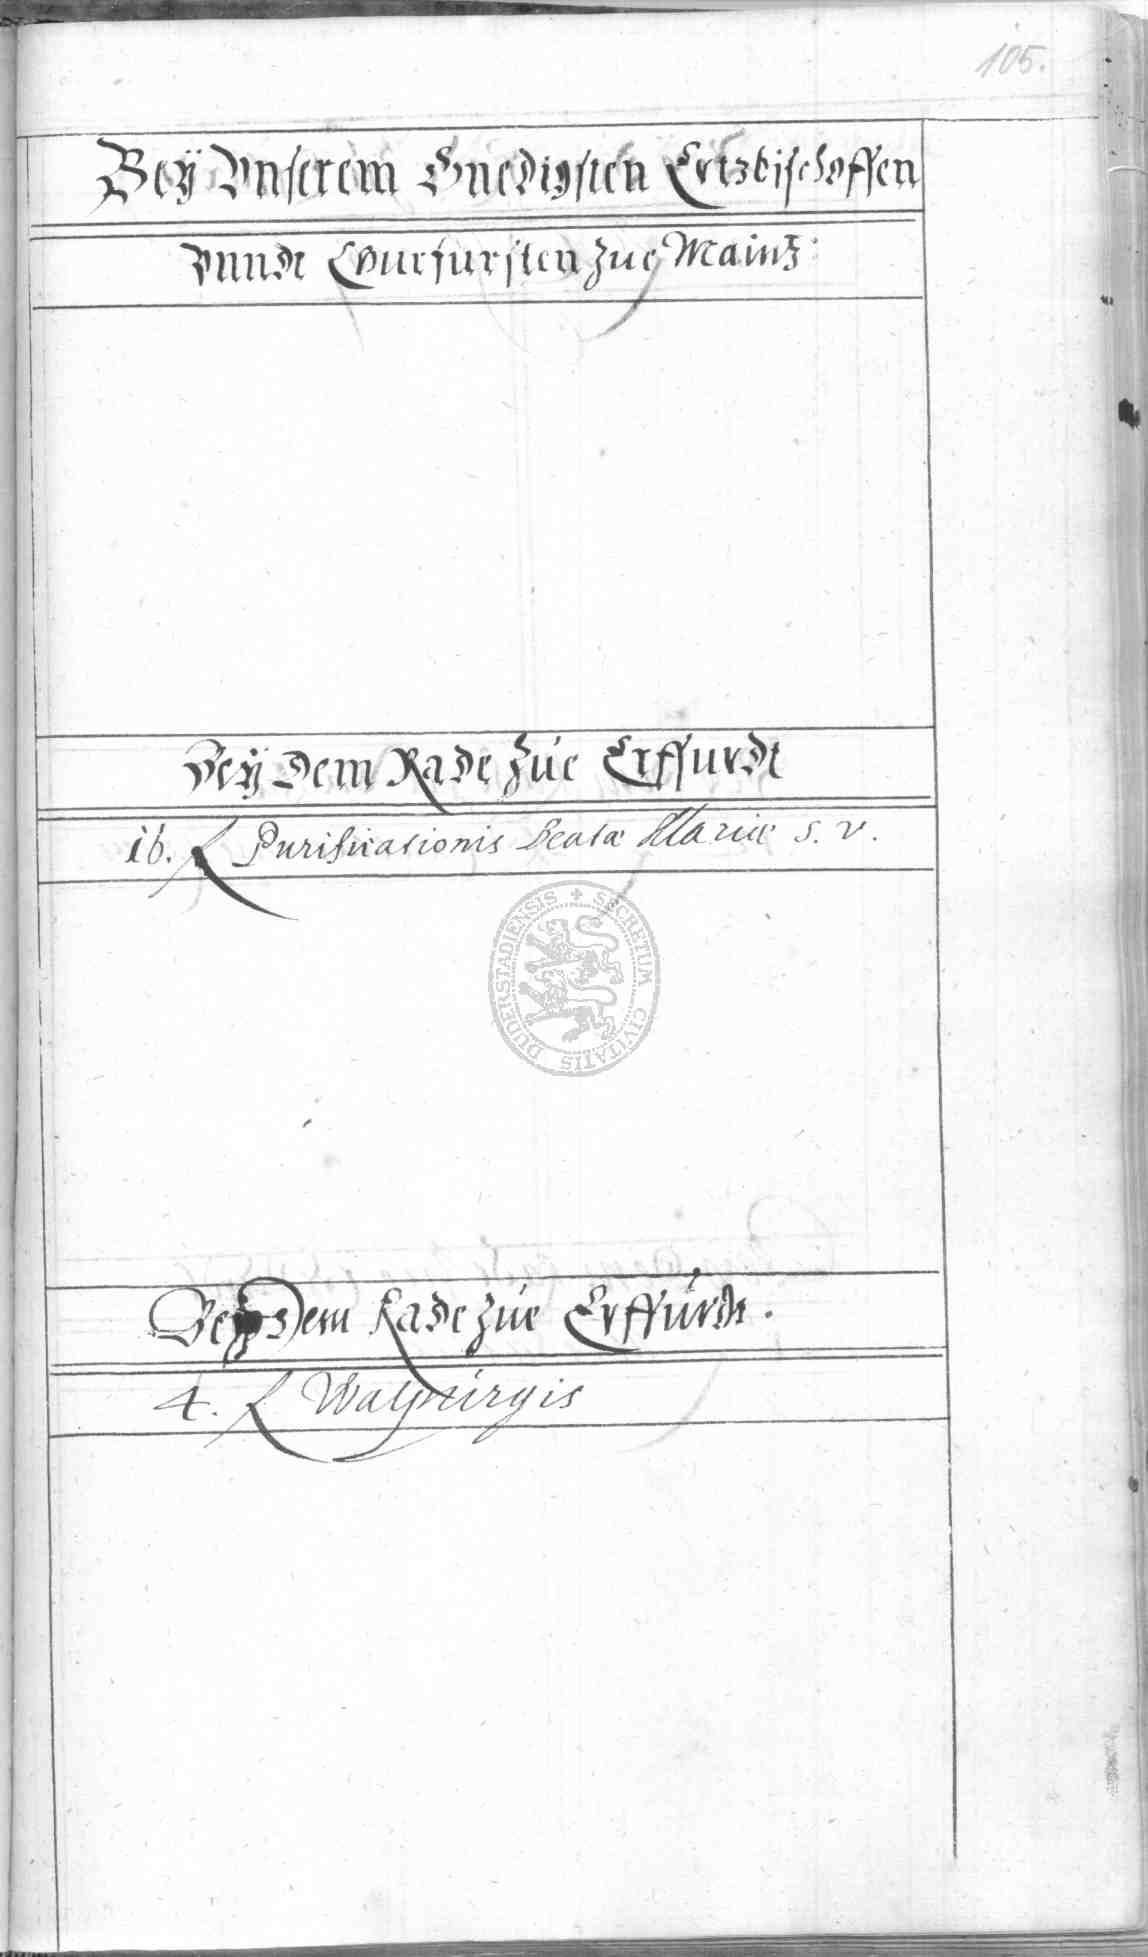 105.
Beÿ Vnserem Gnedigsten Ertzbischoffen
Vnnde Churfursten zue Maintz
Beÿ dem Rade zue Erffurdt
16. fl Purificationis Beatæ Mariæ S. V.
SECRETUM CIVITATIS DUDERSTADIENSIS
Beÿ dem Rade zue Erffurdt.
4. fl Walpurgis